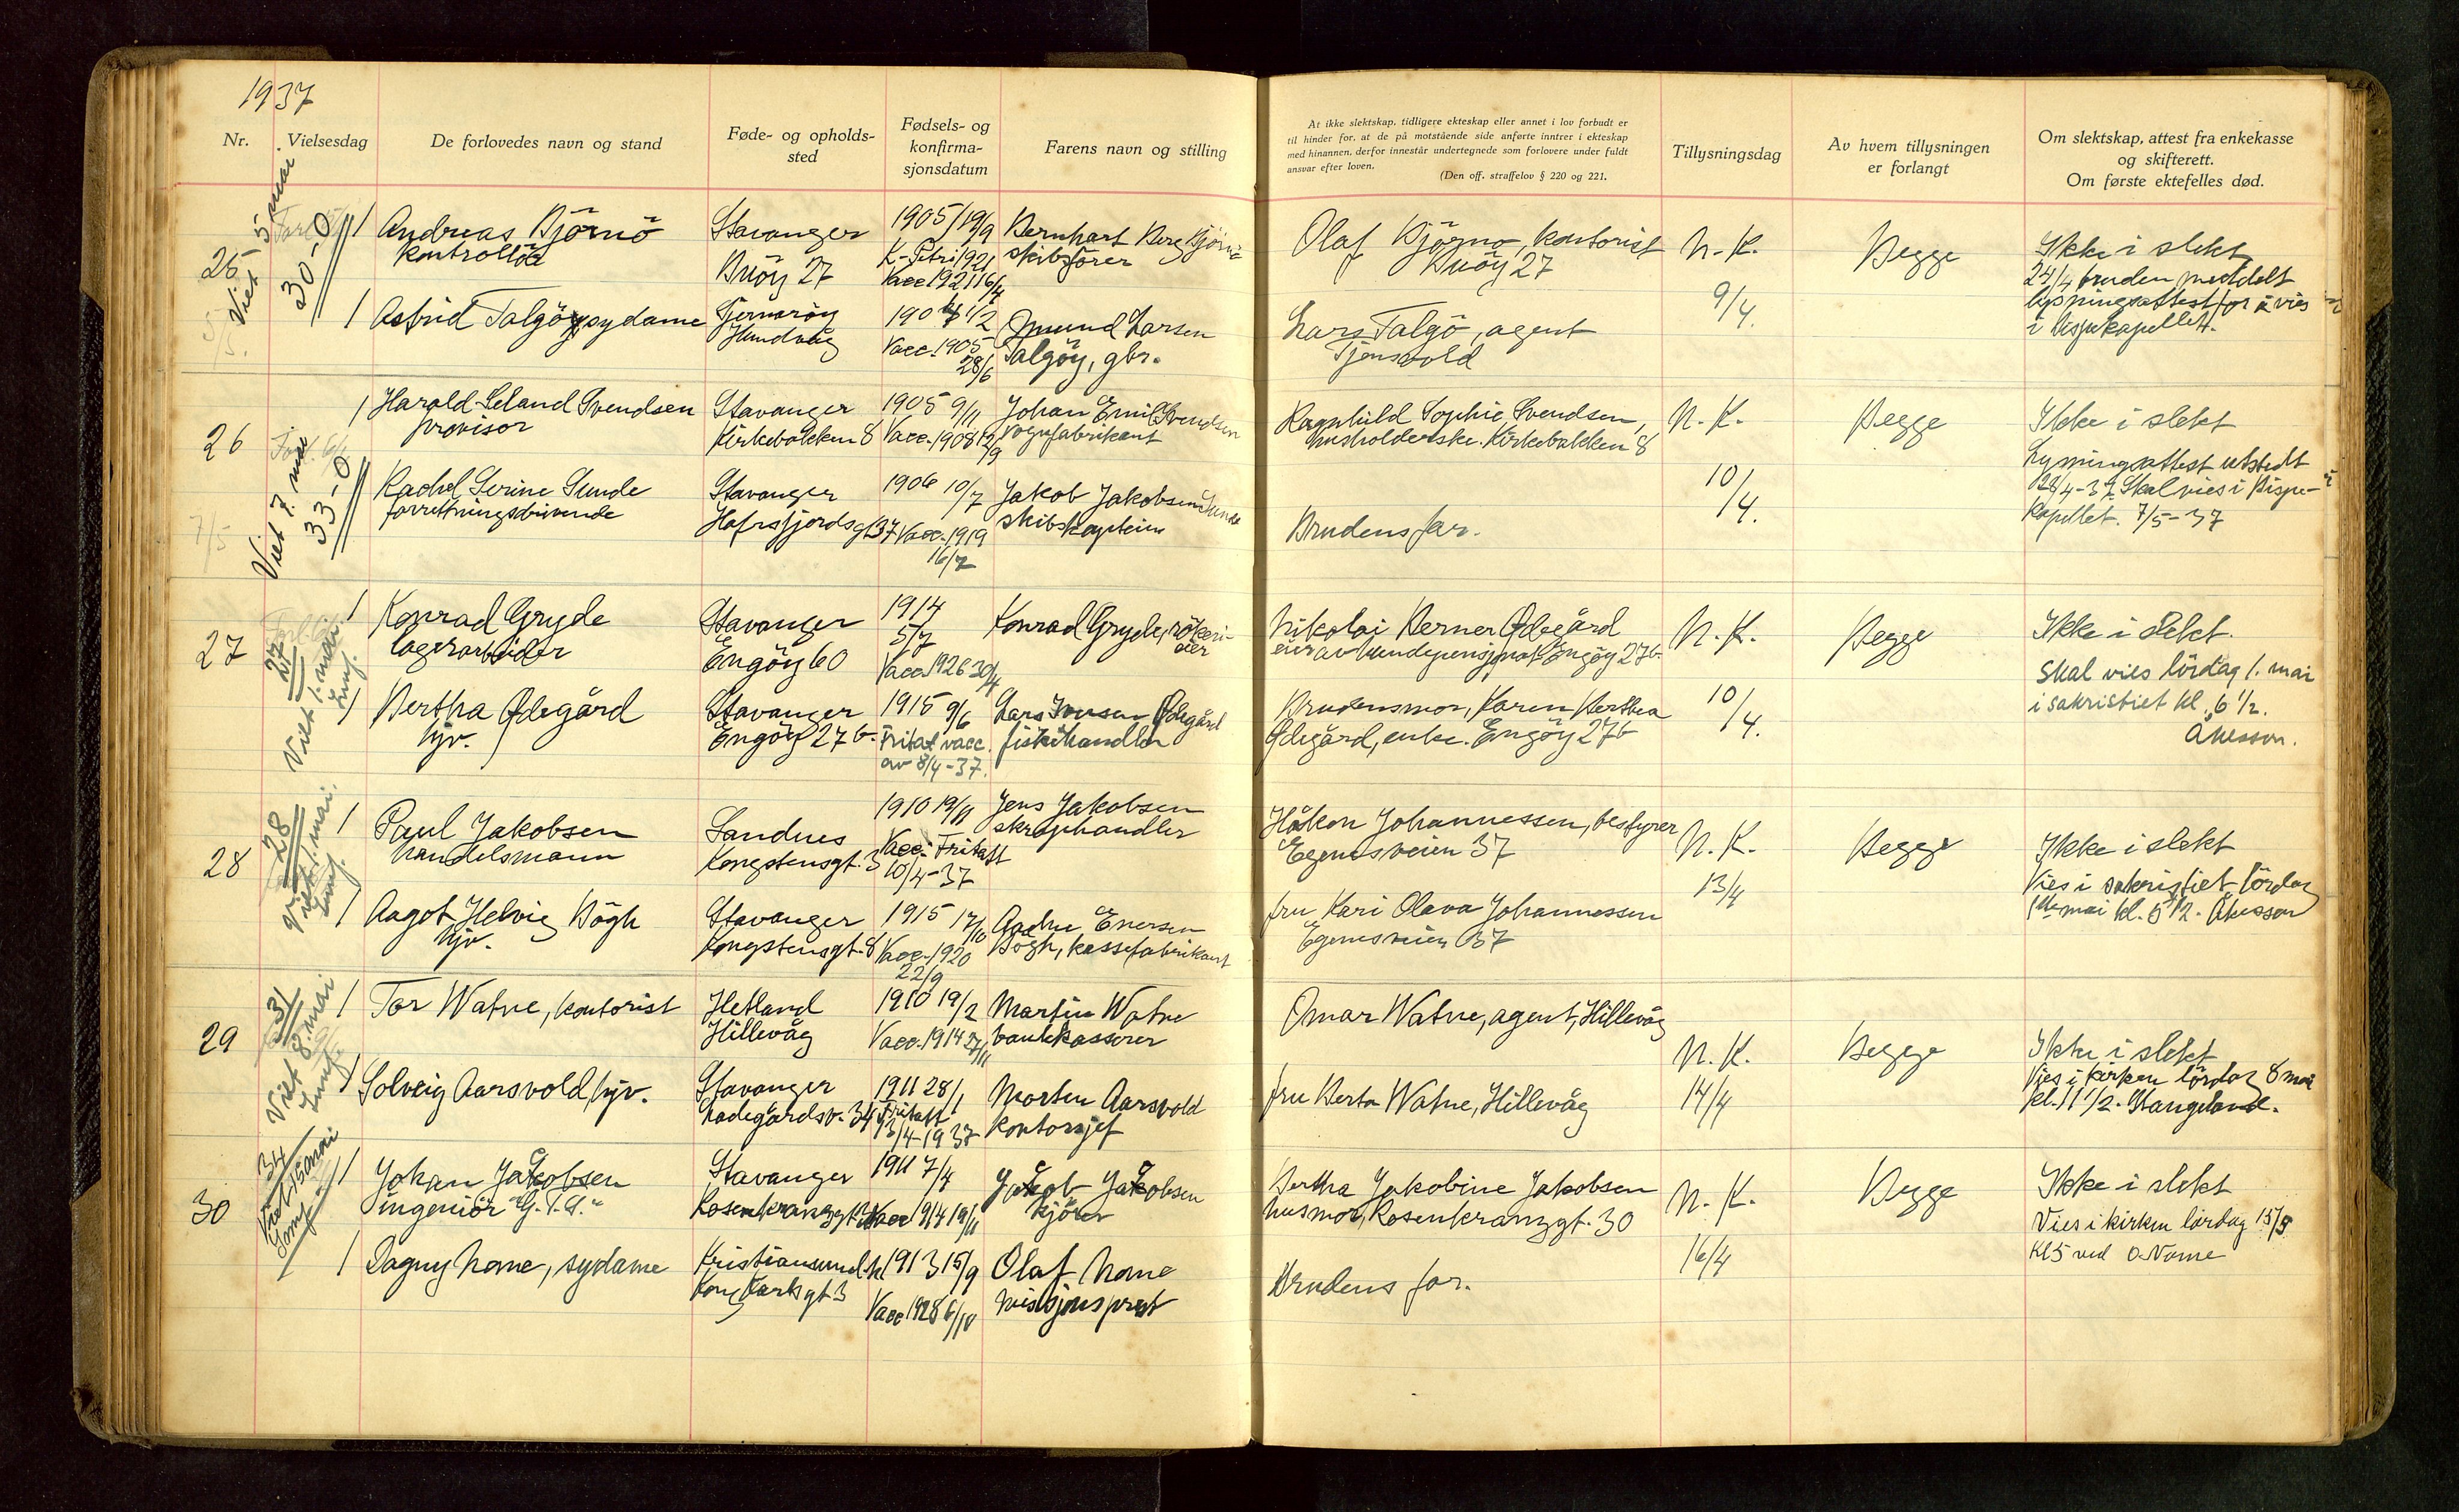 1937
Nr.
Vielsesdag
De forlovedes navn og stand
Føde- og opholds-
sted
Fødsels- og
konfirma-
sjonsdatum
Farens navn og stilling
At ikke slektskap, tidligere ekteskap eller annet i lov forbudt er
til hinder for, at de på motstående side anførte inntrer i ekteskap
med hinannen, derfor innestår undertegnede som forlovere under fuldt
ansvar efter loven.
(Den off. straffelov § 220 og 221.
Tillysningsdag
Av hvem tillysningen
er forlangt
Om slektskap, attest fra enkekasse
og skifterett.
Om første ektefelles død.
25
Viet 5 mai.
30-0
5/5.
Andreas Björnö
kontrollör
Stavanger
Buöy 27
1905 19/9
K-Petri 1921
Vacc 1921 16/4
Bernhart Berg Björnö
skibsförer
Olaf Björnö, kontorist
Buöy 27
N.K.
9/4.
Begge
Ikke i slekt
24/4 bruden meddelt
lysningsattest for å vies
i bispekapellet.
Astrid Talgöy sydame
Fjernröy
Hundvåg
1904 1/2
Vacc. 1905
28/6
Omund Larsen
Talgöy, gbr.
Lars Talgö, agent
Tjensvold
26
Viet 7. mai
33-0
7/5
Harald Leland Svendsen
provisor
Stavanger
Kirkebakken 8
1905 9/11
Vacc. 1908 12/9
Johan Emil Svendsen
vognfabrikant
Ragnhild Sophie Svendsen,
husholderske. Kirkebakken 8
N.K.
10/4.
Begge
Ikke i slekt
Lysningsattest utstedt
28/4-37. Skal vies i Bispe-
kapellet. 7/5-37
Rachel Serine Sunde
forretningsdrivende
Stavanger
Hafrsfjordsgt 37
1906 10/7
Vacc. 1919
16/7
Jakob Jakobsen Sunde
skibskaptein
Brudens far.
27
27
Viet 1. mai.
Konrad Gryde
lagerarbeider
Stavanger
Engöy 60
1914
5/7
Vacc. 1926 30/4
Konrad Gryde, rökeri-
eier
Nikolai Berner Ødegård
eier av hundepensjonat Engöy 27b
N.K.
10/4.
Begge
Ikke i slekt.
Skal vies lördag 1. mai
i sakristiet kl. 6 1/2.
Åkesson.
Bertha Ødegård
hjv.
Stavanger
Engöy 27b.
1915 9/6
Fritat vacc.
av 8/4-37.
Lars Iversen Ødegård
fiskehandler
Brudens mor, Karen Berthea
Ødegård, enke. Engöy 27b
28
28
Viet 1. mai.
Paul Jakobsen
handelsmann
Sandnes
Kongstensgt. 3
1910 19/11
Vacc. Fritatt
10/4-37
Jens Jakobsen
skraphandler
Håkon Johannessen, bestyrer
Egenesveien 37
N.K.
13/4
Begge
Ikke i slekt
Vies i sakristiet lördag
1ste mai kl. 5 1/2. Åkesson
Aagot Helvig Bögh
hjv.
Stavanger
Kongstensgt. 8
1915 17/10
Vacc. 1920
22/9
Aadne Enersen
Bögh, kassefabrikant
fru Kari Olava Johannessen
Egenesveien 37
29
31
Viet 8. mai
Tor Watne, kontorist
Hetland
Hillevåg
1910 19/2
Vacc. 1914 27/11
Martin Watne
bankkasserer
Omar Watne, agent, Hillevåg
N.K.
14/4
Begge
Ikke i slekt
Vies i kirken lördag 8 mai
kl. 11 1/2. Stangeland.
Solveig Aarsvold, hjv.
Stavanger
Ladegårdsv. 34
1911 28/1
Fritatt
13/4-1937
Morten Aarsvold
kontorsjef
fru Berta Watne, Hillevåg
30
34
Viet 15 mai
Johan Jakobsen
ingeniör "G.T.A."
Stavanger
Rosenkranzgt. 30
1911 7/4
Vacc 1914 19/11
Jakob Jakobsen
kjörer
Bertha Jakobine Jakobsen
husmor, Rosenkranzgt. 30
N.K.
16/4
Begge
Ikke i slekt
Vies i kirken lördag 15/5
kl 5 ved O. Nome
Dagny Nome, sydame
Kristiansund N
Kong Karlsgt 3
1913 15/9
Vacc 1928 6/10
Olaf Nome
misjonsprest
Brudens far.